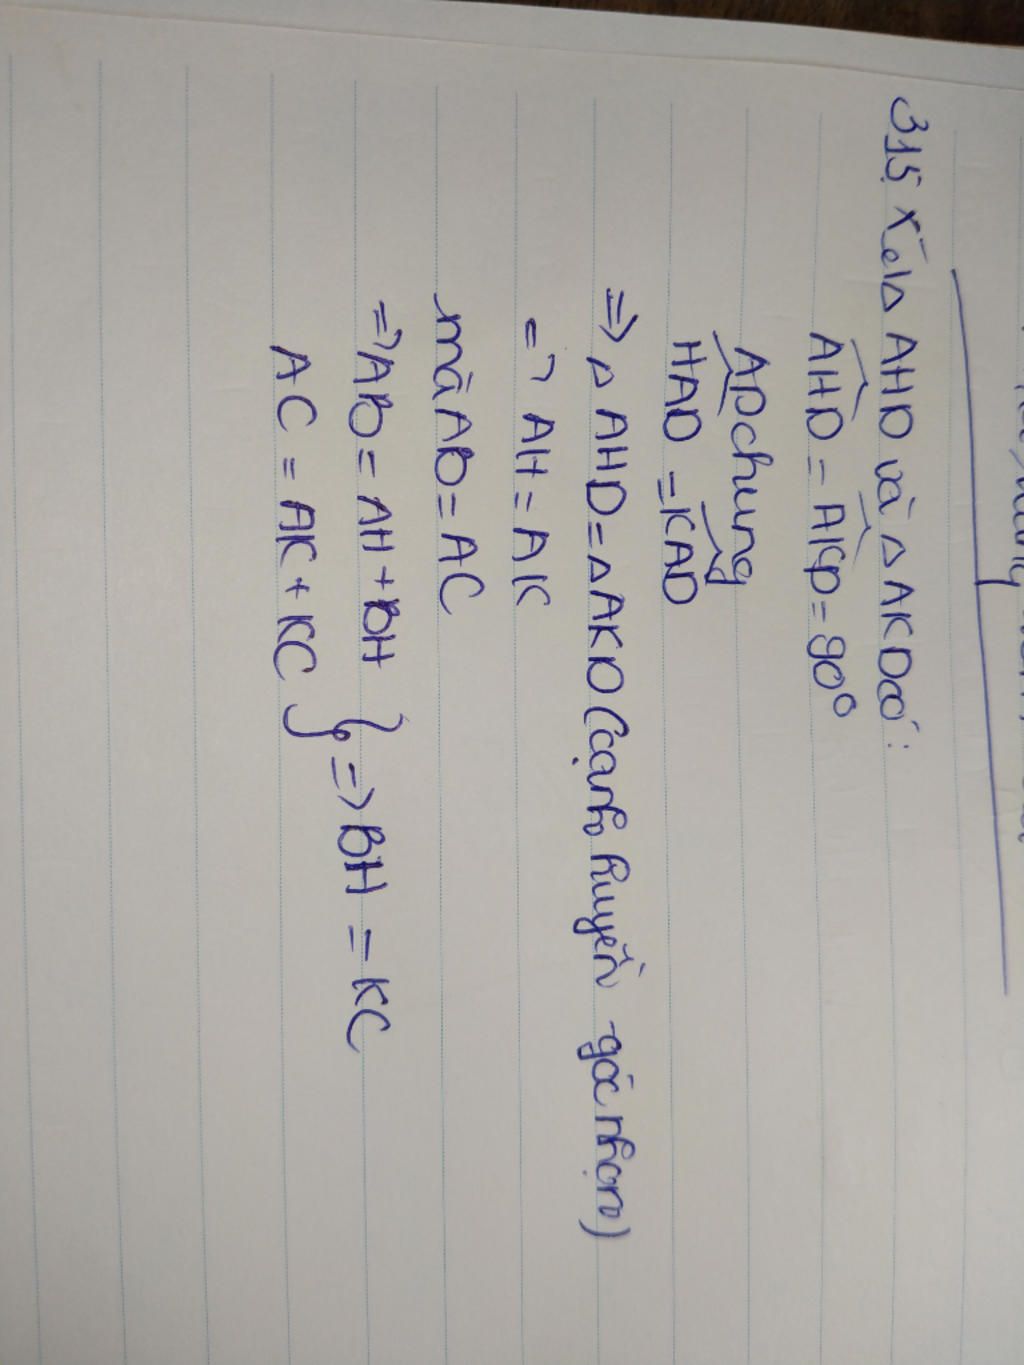 315, Xét △ AHD và △ AKD có:
AHD = AKD = 90°
AD chung
HAD = KAD
=> △ AHD = △ AKD (cạnh huyền - góc nhọn)
=> AH = AK
mà AB = AC
=> AB = AH + BH
AC = AK + KC } => BH = KC